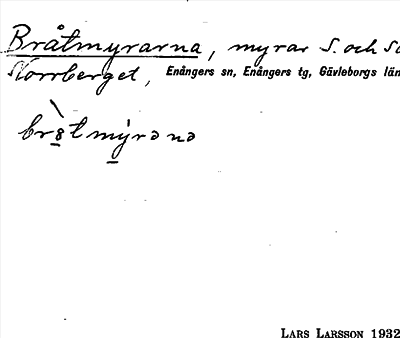 Bråtmyrarna, myrar S. och So
Storrberget, Enångers sn, Enångers tg, Gävleborgs län
bròtmýrəna
LARS LARSSON 1932